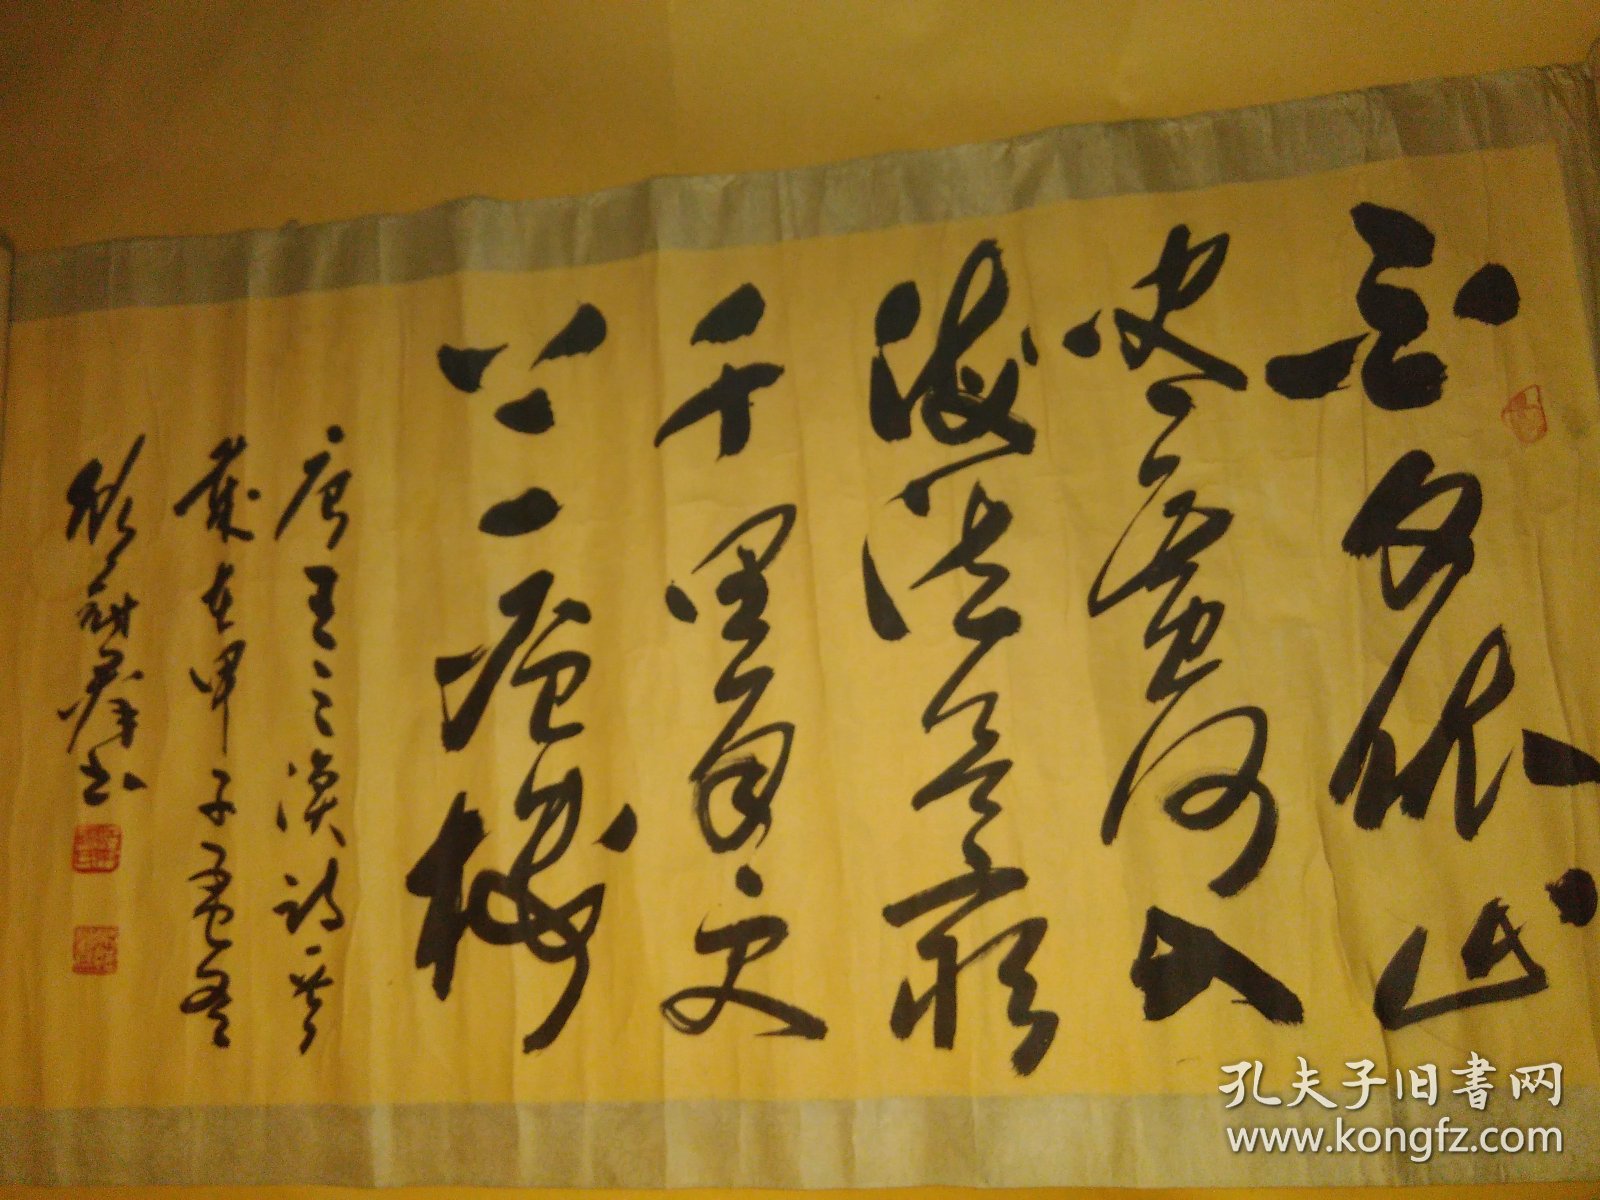 白日依山
尽黄河入
海流欲穷
千里目更
上一层楼
唐王之涣诗一首
岁在甲子孟冬
书
孔夫子旧书网
www.kongfz.com